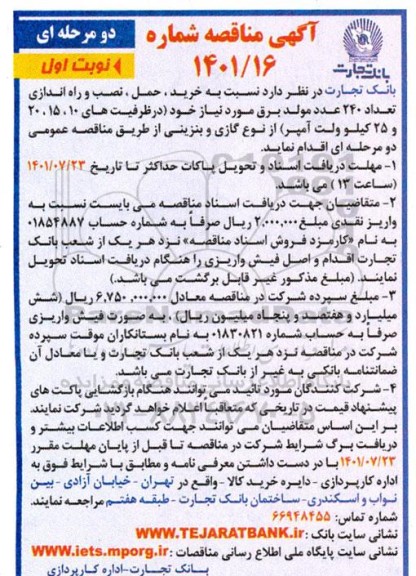 آگهی مناقصه شماره
۱۴۰۱/۱۶
دو مرحله ای
نوبت اول
بانک تجارت
بانک تجارت در نظر دارد نسبت به خرید ، حمل ، نصب و راه اندازی
تعداد ۲۴۰ عدد مولد برق مورد نیاز خود (درظرفیت های ۱۰، ۱۵، ۲۰
و ۲۵ کیلو ولت آمپر) از نوع گازی و بنزینی از طریق مناقصه عمومی
دو مرحله ای اقدام نماید.
۱- مهلت دریافت اسناد و تحویل پاکات حداکثر تا تاریخ ۱۴۰۱/۰۷/۲۳
(ساعت ۱۳ ) می باشد.
۲- متقاضیان جهت دریافت اسناد مناقصه می بایست نسبت به
واریز نقدی مبلغ ۲.۰۰۰.۰۰۰ ریال صرفاً به شماره حساب ۰۱۸۵۴۸۸۷
به نام «کارمزد فروش اسناد مناقصه» نزد هر یک از شعب بانک
تجارت اقدام و اصل فیش واریزی را هنگام دریافت اسناد تحویل
نمایند. (مبلغ مذکور غیر قابل برگشت می باشد.)
۳- مبلغ سپرده شرکت در مناقصه معادل ۶.۷۵۰.۰۰۰.۰۰۰ ریال (شش
میلیارد و هفتصد و پنجاه میلیون ریال)، که به صورت فیش واریزی
صرفاً به حساب شماره ۰۱۸۳۰۸۲۱ به نام بستانکاران موقت سپرده
شرکت در مناقصه نزد هر یک از شعب بانک تجارت و یا معادل آن
ضمانتنامه بانکی به غیر از بانک تجارت می باشد.
۴- شرکت کنندگان مورد تائید می توانند هنگام بازگشایی پاکت های
پیشنهاد قیمت در تاریخی که متعاقبا اعلام خواهد گردید شرکت نمایند.
بر این اساس متقاضیان می توانند جهت کسب اطلاعات بیشتر و
دریافت برگ شرایط شرکت در مناقصه تا قبل از پایان مهلت مقرر
۱۴۰۱/۰۷/۲۳ با در دست داشتن معرفی نامه و مطابق با شرایط فوق به
اداره کارپردازی - دایره خرید کالا - واقع در تهران - خیابان آزادی - بین
نواب و اسکندری- ساختمان بانک تجارت - طبقه هفتم مراجعه نمایند.
شماره تماس: ۶۶۹۴۸۴۵۵
نشانی سایت بانک : WWW.TEJARATBANK.ir
نشانی سایت پایگاه ملی اطلاع رسانی مناقصات : www.iets.mporg.ir
بانک تجارت-اداره کارپردازی